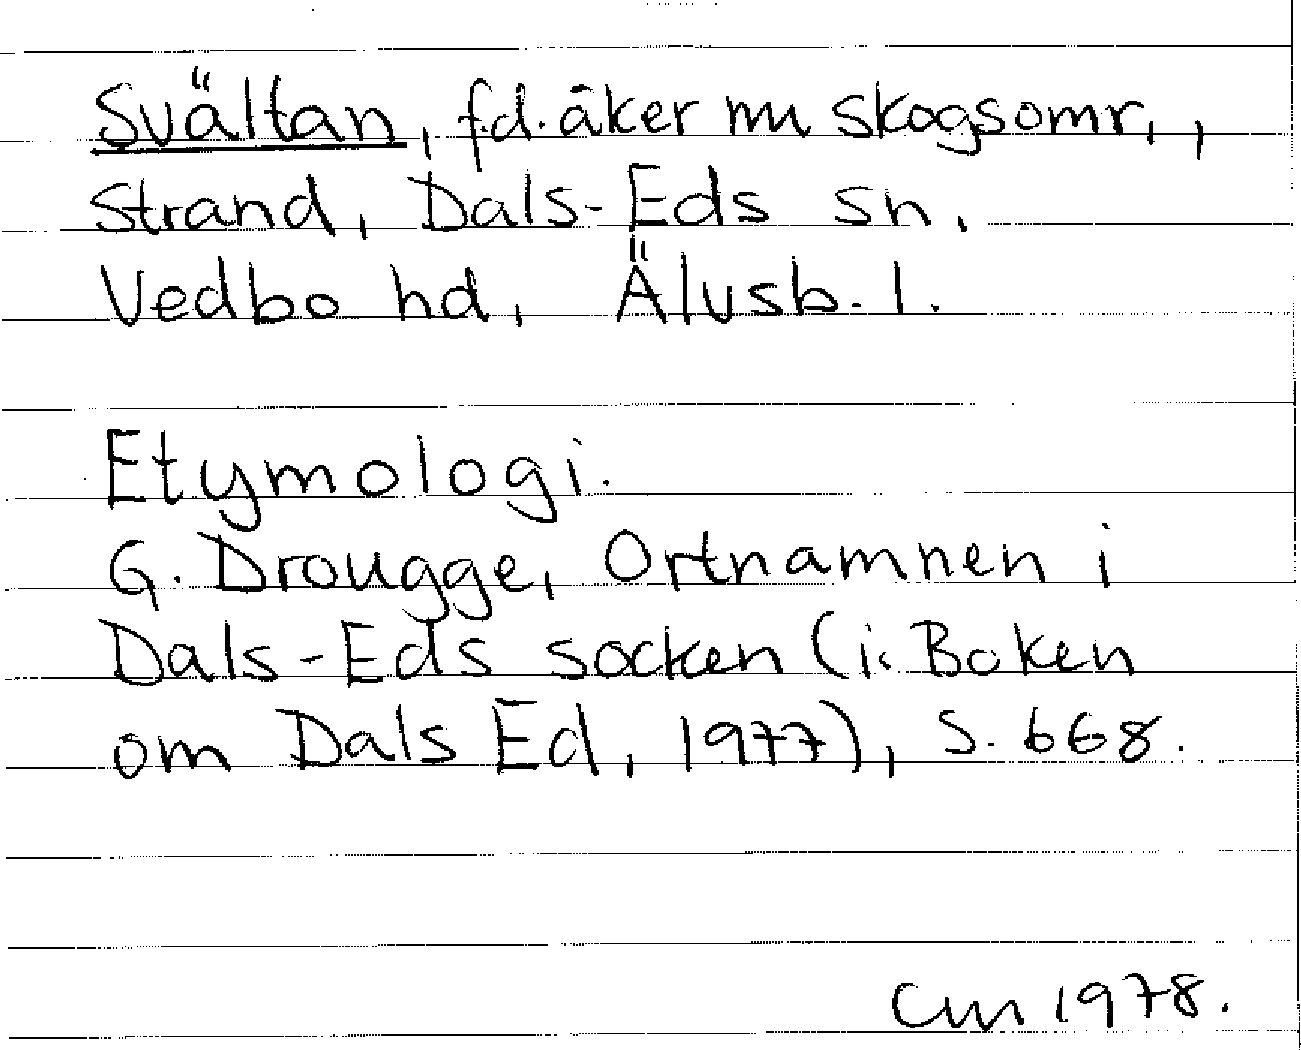 Svältan, f.d. åker nu skogsomr.,
Strand, Dals-Eds sn.
Vedbo hd, Älvsb. l.
Etymologi.
G. Drougge, Ortnamnen i
Dals-Eds socken (i: Boken
om Dals Ed, 1977), s. 668.
CM 1978.